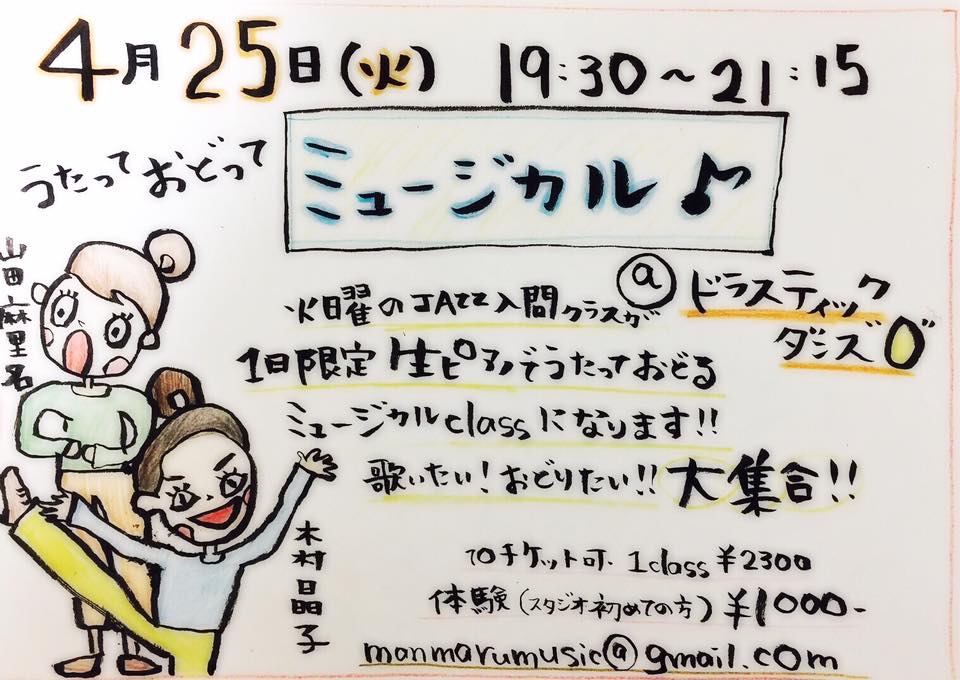 4月25日(火) 19:30〜21:15
うたって おどって
ミュージカル♪
山田麻里名
火曜のJAZZ入門クラスが
@ドラスティック
ダンス
1日限定 生ピアノでうたっておどる
ミュージカルclassになります!!
歌いたい!おどりたい!! 大集合!!
木村晶子
チケット可. 1class ¥2300
体験(スタジオ初めての方) ¥1000-
manmarumusic@gmail.com